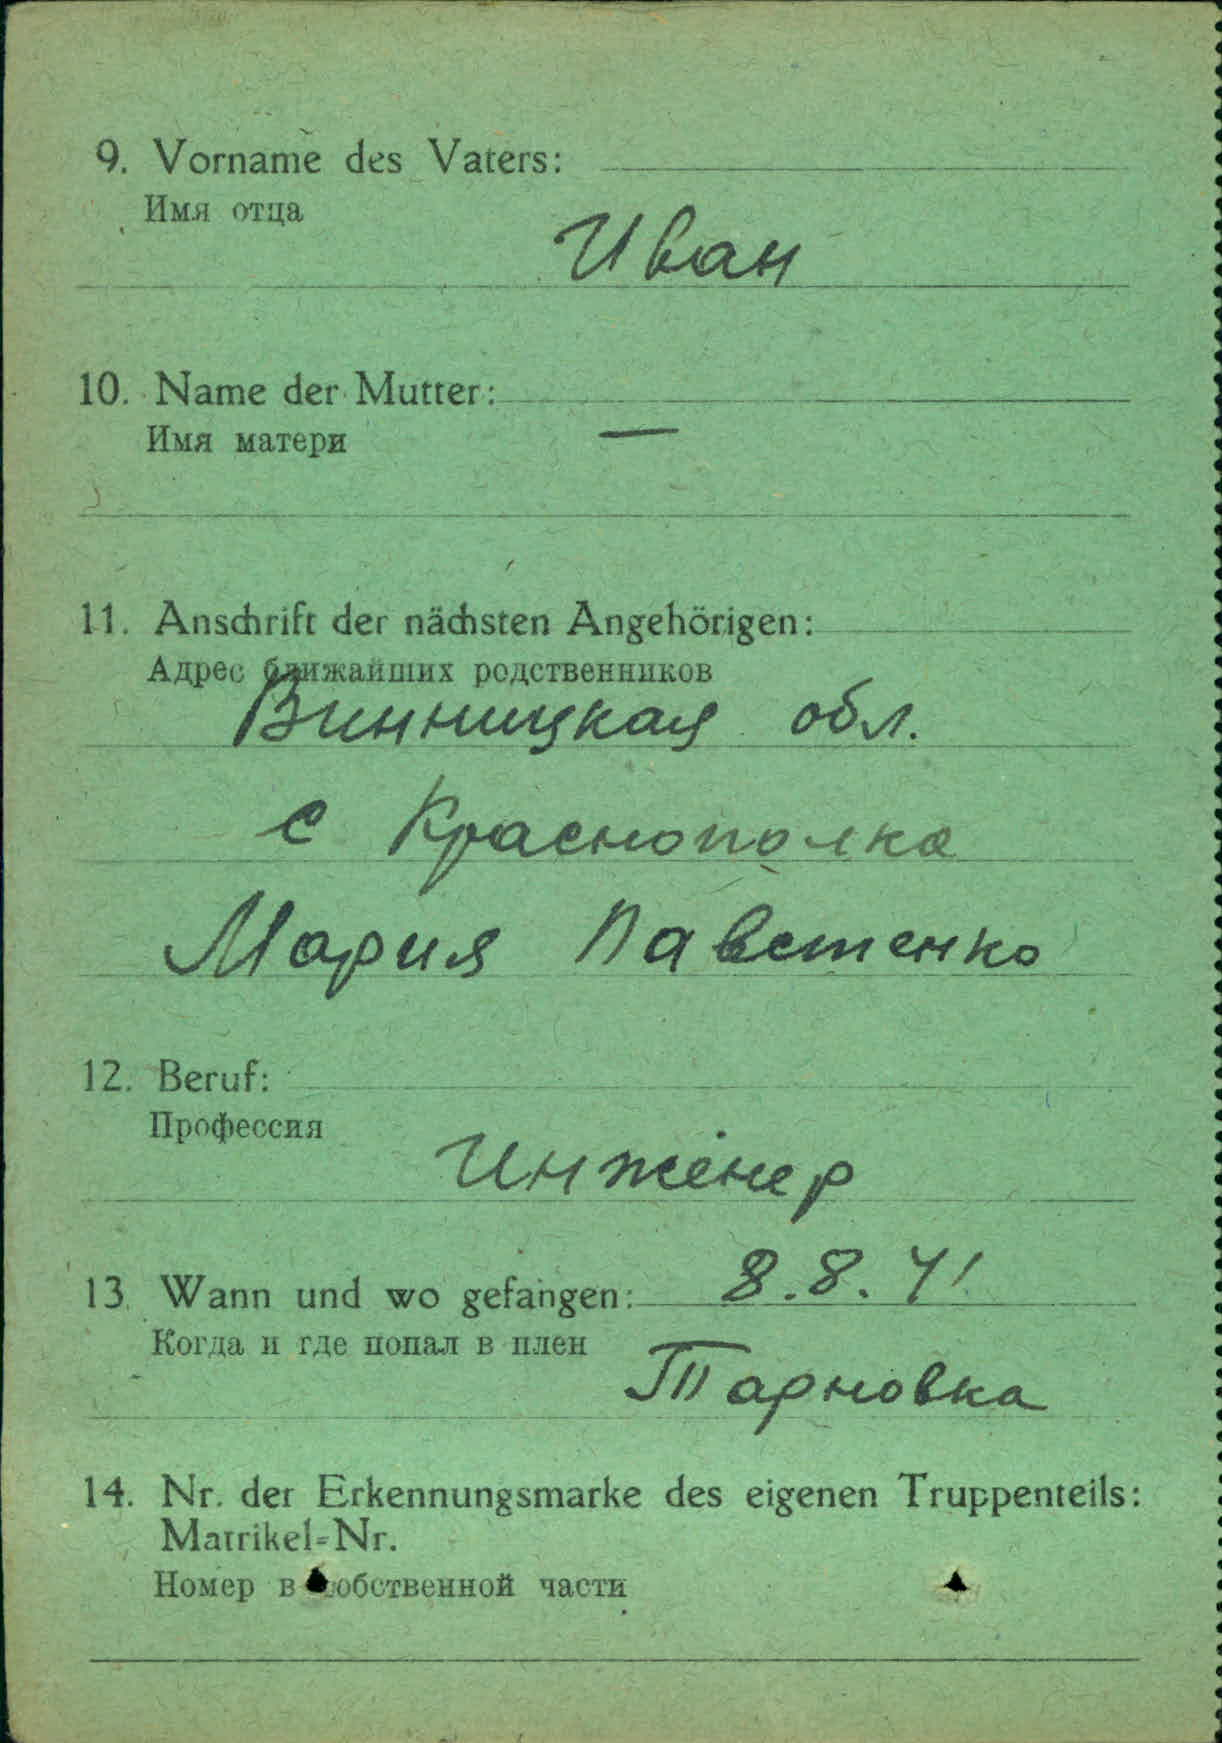 9. Vorname des Vaters:
Имя отца
Иван
10. Name der Mutter:
Имя матери
—
11. Anschrift der nächsten Angehörigen:
Адрес ближайших родственников
Винницкая обл.
с Краснополка
Мария Павстенко
12. Beruf:
Профессия
Инженер
13. Wann und wo gefangen: 8.8.41
Когда и где попал в плен
Тарновка
14. Nr. der Erkennungsmarke des eigenen Truppenteils:
Matrikel-Nr.
Номер в собственной части